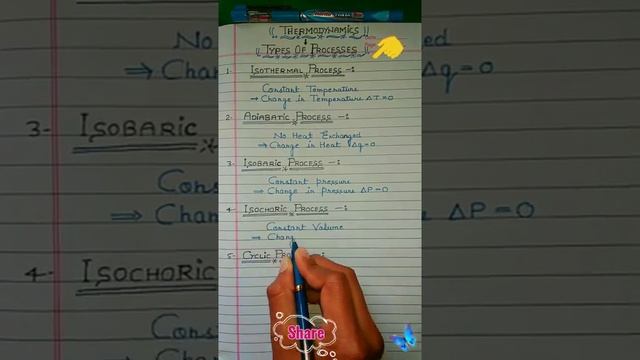 THERMODYNAMICS
TYPES OF PROCESSES
1- ISOTHERMAL PROCESS -:
Constant Temperature
→ Change in Temperature ΔT=0
2- ADIABATIC PROCESS -:
No Heat Exchanged
⇒ Change in Heat Δq=0
3- ISOBARIC PROCESS -:
Constant pressure
⇒ Change in pressure ΔP=0
4- ISOCHORIC PROCESS -:
Constant Volume
⇒ Chang
5- CYCLIC PRO
Share
No H
Chan
Δq=0
3- ISOBARIC
Const
⇒ Chan
ΔP=0
4- ISOCHORIC
Const
⇒ Chan